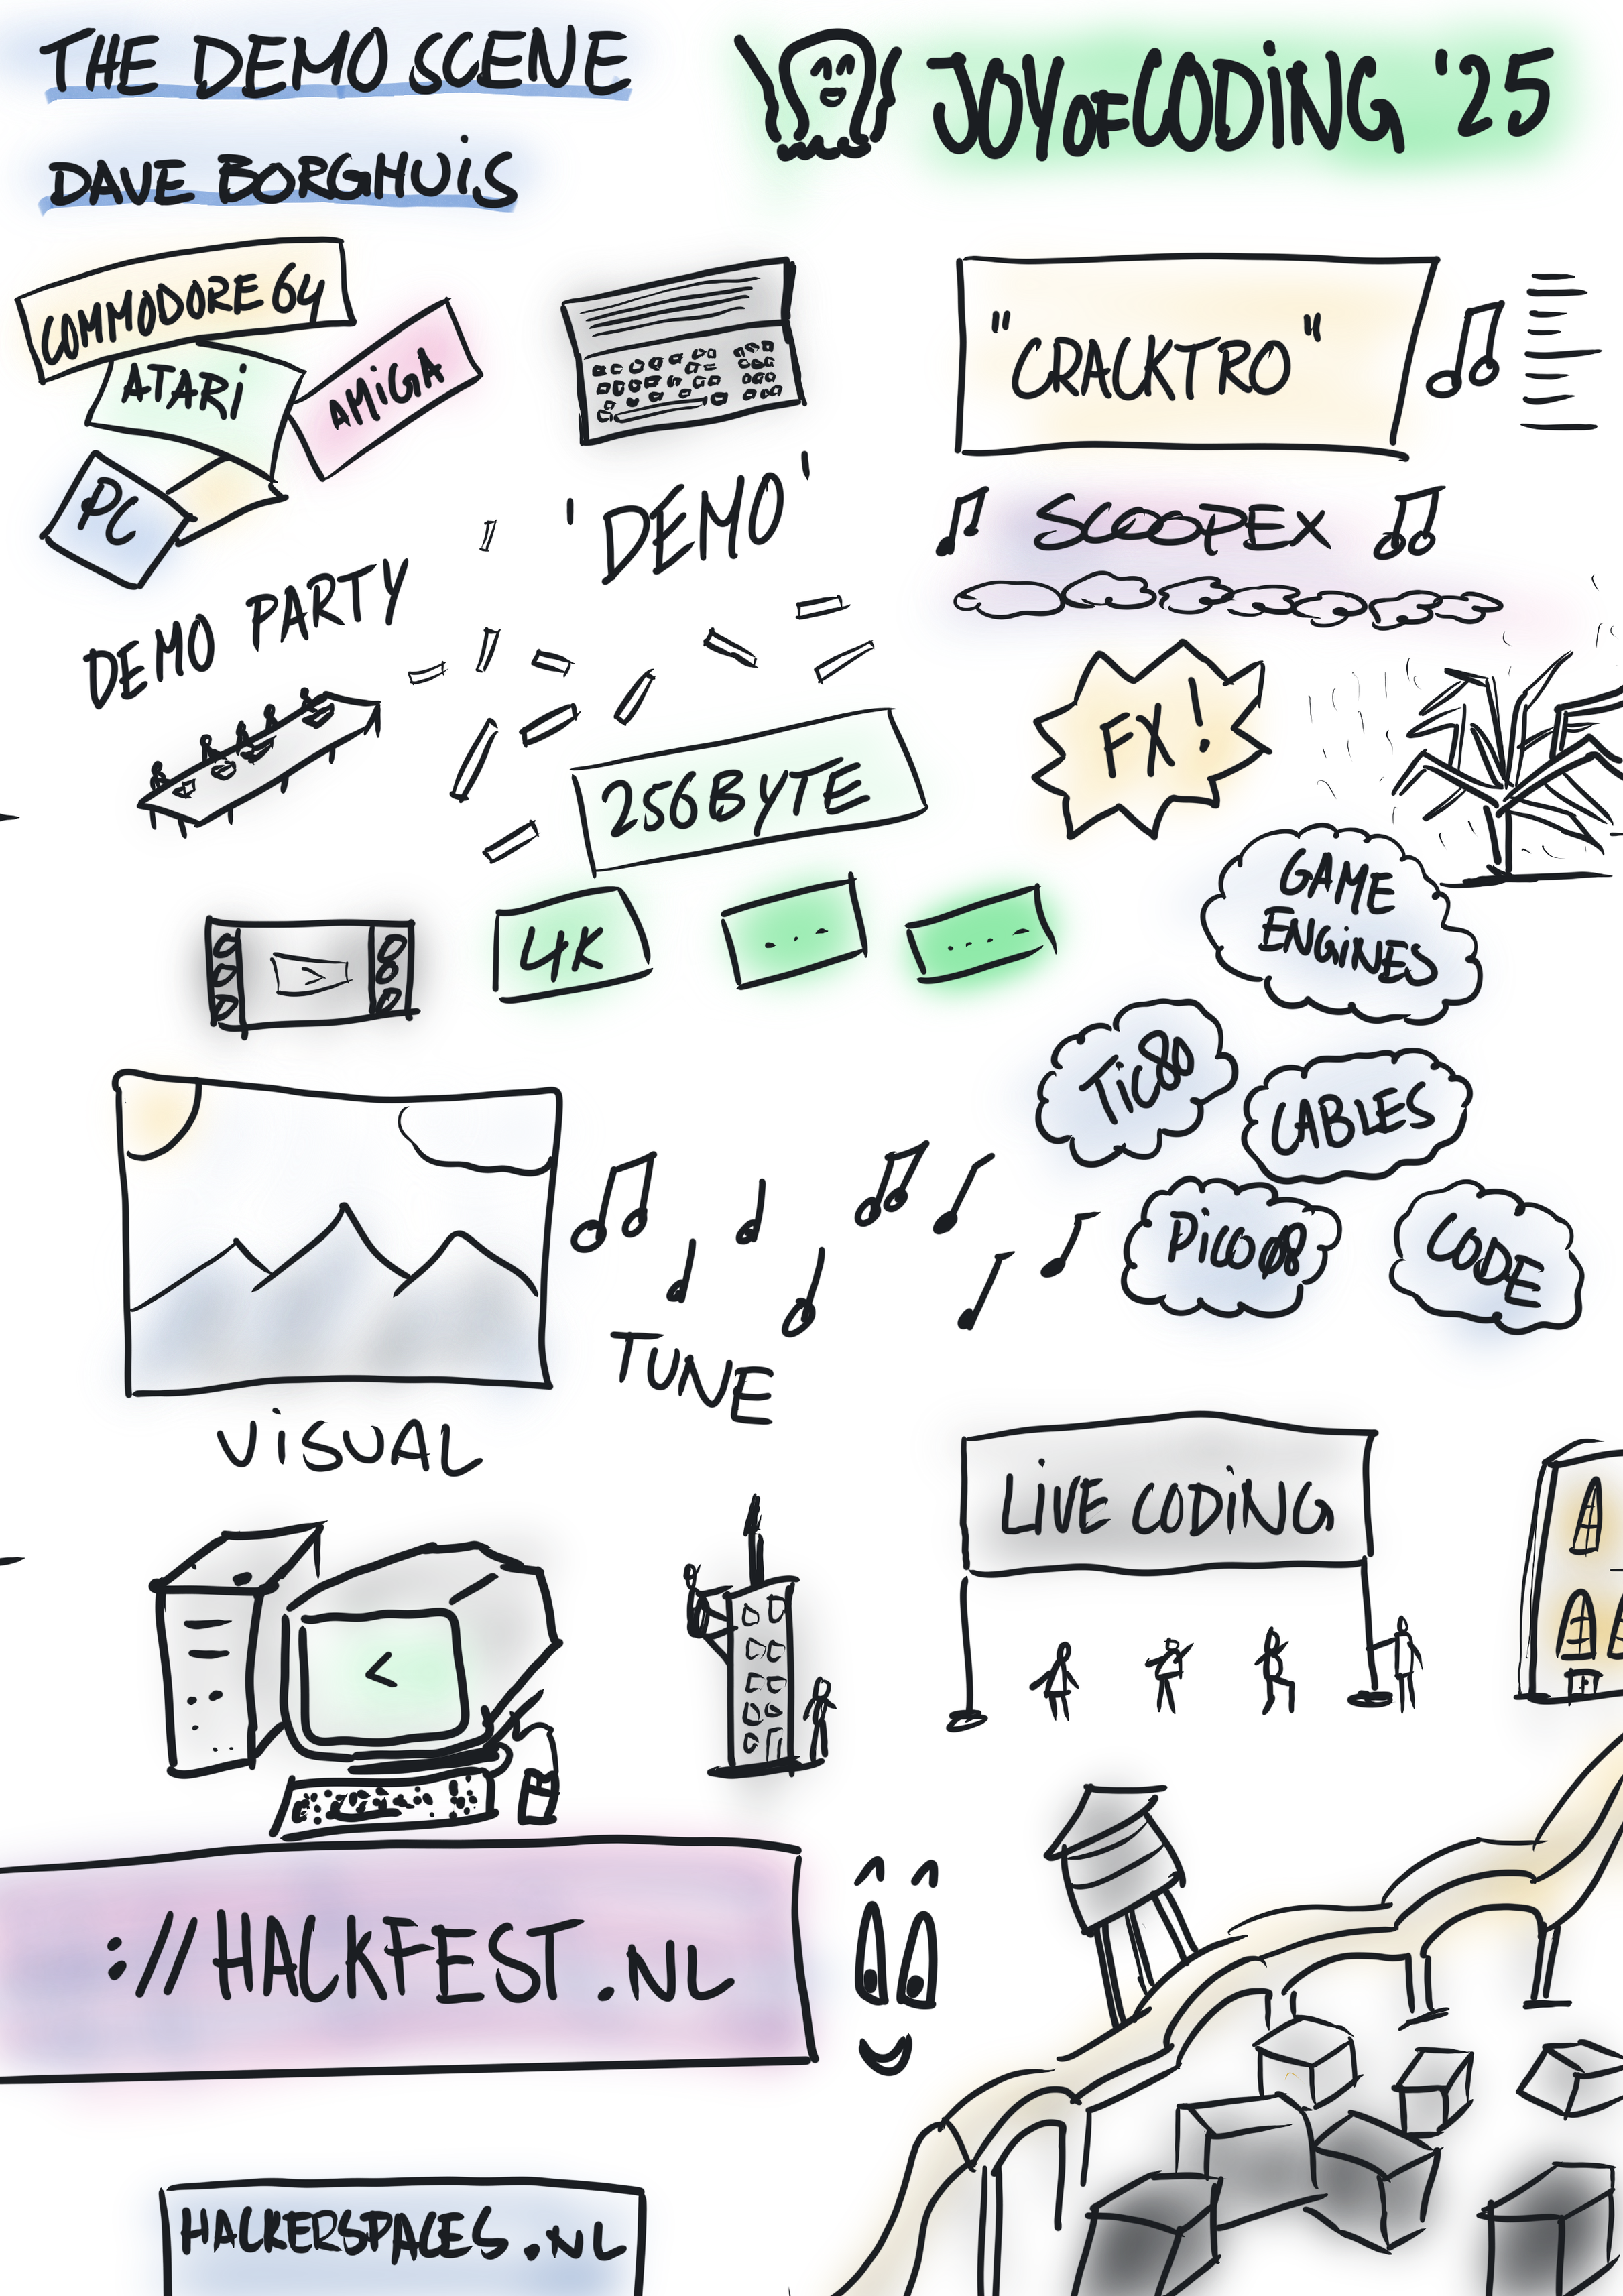 THE DEMO SCENE
DAVE BORGHUiS
JOY OF CODiNG '25
COMMODORE 64
ATARi
AMiGA
PC
'DEMO'
"CRACKTRO"
SCOOPEX
DEMO PARTY
FX!
256 BYTE
4K
...
....
GAME
ENGiNES
TiC80
CABLES
PiCO08
CODE
TUNE
ViSUAL
LiVE CODiNG
<
://HACKFEST.NL
HACKERSPACES.NL